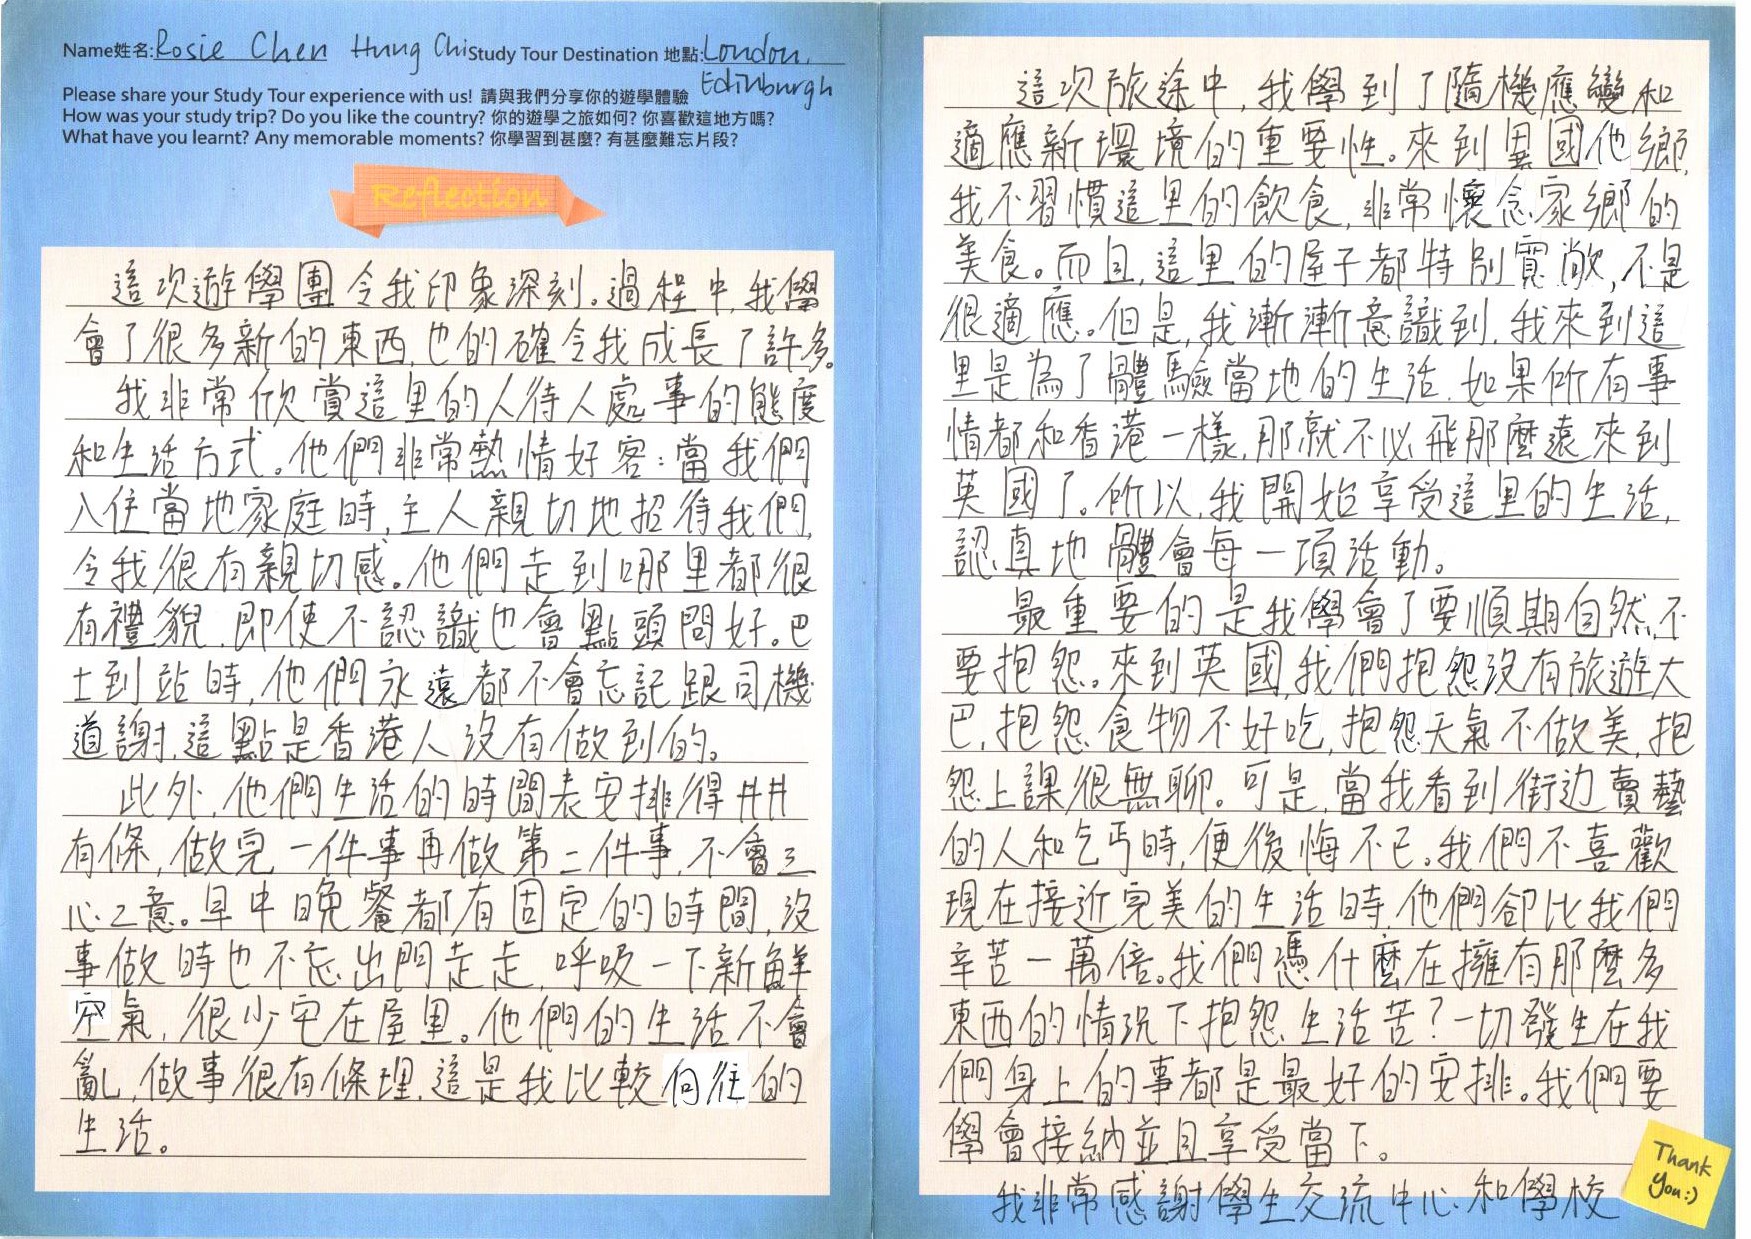 Name姓名:Rosie Chen Hung Chi Study Tour Destination 地點:London,
Edinburgh
Please share your Study Tour experience with us! 請與我們分享你的遊學體驗
How was your study trip? Do you like the country? 你的遊學之旅如何? 你喜歡這地方嗎?
What have you learnt? Any memorable moments? 你學習到甚麼? 有甚麼難忘片段?
Reflection
這次遊學團令我印象深刻。過程中,我學
會了很多新的東西,也的確令我成長了許多。
我非常欣賞這里的人待人處事的態度
和生活方式。他們非常熱情好客:當我們
入住當地家庭時,主人親切地招待我們,
令我很有親切感。他們走到哪里都很
有禮貌,即使不認識也會點頭問好。巴
士到站時,他們永遠都不會忘記跟司機
道謝,這點是香港人沒有做到的。
此外,他們生活的時間表安排得井井
有條,做完一件事再做第二件事,不會三
心二意。早中晚餐都有固定的時間,沒
事做時也不忘出門走走,呼吸一下新鮮
空氣,很少宅在屋里。他們的生活不會
亂,做事很有條理,這是我比較向往的
生活。
這次旅途中,我學到了隨機應變和
適應新環境的重要性。來到異國他鄉,
我不習慣這里的飲食,非常懷念家鄉的
美食。而且,這里的屋子都特別寬敞,不是
很適應。但是,我漸漸意識到,我來到這
里是為了體驗當地的生活,如果所有事
情都和香港一樣,那就不必飛那麼遠來到
英國了。所以,我開始享受這里的生活,
認真地體會每一項活動。
最重要的是我學會了要順期自然,不
要抱怨。來到英國,我們抱怨沒有旅遊大
巴,抱怨食物不好吃,抱怨天氣不做美,抱
怨上課很無聊。可是,當我看到街边賣藝
的人和乞丐時,便後悔不已。我們不喜歡
現在接近完美的生活時,他們卻比我們
辛苦一萬倍。我們憑什麼在擁有那麼多
東西的情況下抱怨生活苦?一切發生在我
們身上的事都是最好的安排。我們要
學會接納並且享受當下。
我非常感謝學生交流中心和學校
Thank
you:)